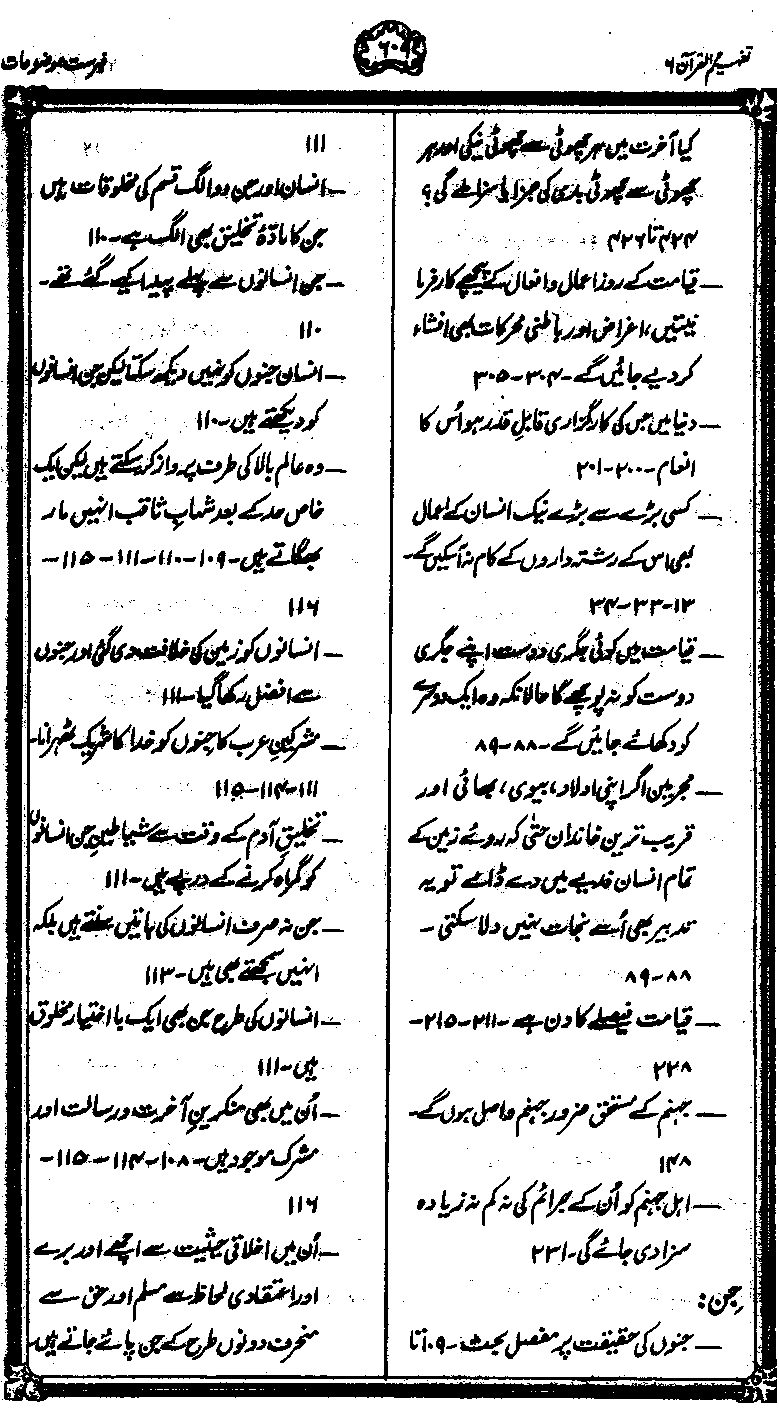 تفہیم القرآن ۶
۶۰۹
فہرست موضوعات
کیا آخرت میں ہر چھوٹی سے چھوٹی نیکی اور ہر
چھوٹی سے چھوٹی بدی کی جزا یا سزا ملے گی؟
۴۲۴ تا ۴۲۶
— قیامت کے روز اعمال و افعال کے پیچھے کارفرما
نیتیں، اغراض اور باطنی محرکات بھی افشاء
کر دیے جائیں گے۔ ۳۰۴-۳۰۵
— دنیا میں جس کی کارگزاری قابلِ قدر ہو اُس کا
انعام۔ ۲۰۰-۲۰۱
— کسی بڑے سے بڑے نیک انسان کے اعمال
بھی اس کے رشتہ داروں کے کام نہ آسکیں گے۔
۱۳-۳۳-۳۴
— قیامت میں کوئی جگری دوست اپنے جگری
دوست کو نہ پوچھے گا حالانکہ وہ ایک دوسرے
کو دکھائے جائیں گے۔ ۸۸-۸۹
— مجرمین اگر اپنی اولاد، بیوی، بھائی اور
قریب ترین خاندان حتٰی کہ روئے زمین کے
تمام انسان فدیے میں دے ڈالے تو یہ
تدبیر بھی اُسے نجات نہیں دلا سکتی۔
۸۸-۸۹
— قیامت فیصلے کا دن ہے۔ ۲۱۱-۲۱۵-
۲۲۸
— جہنم کے مستحق ضرور جہنم واصل ہوں گے۔
۱۴۸
— اہل جہنم کو اُن کے جرائم کی نہ کم نہ زیادہ
سزا دی جائے گی۔ ۲۳۱
جن:
— جنوں کی حقیقت پر مفصل بحث۔ ۱۰۹ تا
۱۱۱
— انسان اور جن دو الگ قسم کی مخلوقات ہیں
جن کا مادّۂ تخلیق بھی الگ ہے۔ ۱۱۰
— جن انسانوں سے پہلے پیدا کیے گئے تھے۔
۱۱۰
— انسان جنوں کو نہیں دیکھ سکتا لیکن جن انسانوں
کو دیکھتے ہیں۔ ۱۱۰
— وہ عالم بالا کی طرف پرواز کر سکتے ہیں لیکن ایک
خاص حد کے بعد شہابِ ثاقب انہیں مار
بھگاتے ہیں۔ ۱۰۹-۱۱۰-۱۱۱-۱۱۵-
۱۱۶
— انسانوں کو زمین کی خلافت دی گئی اور جنوں
سے افضل رکھا گیا۔ ۱۱۱
— مشرکینِ عرب کا جنوں کو خدا کا شریک ٹھہرانا۔
۱۱۱-۱۱۴-۱۱۵
— تخلیقِ آدم کے وقت سے شیاطینِ جن انسانوں
کو گمراہ کرنے کے درپے ہیں۔ ۱۱۱
— جن نہ صرف انسانوں کی باتیں سنتے ہیں بلکہ
انہیں سمجھتے بھی ہیں۔ ۱۱۳
— انسانوں کی طرح جن بھی ایک با اختیار مخلوق
ہیں۔ ۱۱۱
— اُن میں بھی منکرینِ آخرت و رسالت اور
مشرک موجود ہیں۔ ۱۰۸-۱۱۴-۱۱۵-
۱۱۶
— اُن میں اخلاقی حیثیت سے اچھے اور برے
اور اعتقادی لحاظ سے مسلم اور حق سے
منحرف دونوں طرح کے جن پائے جاتے ہیں۔